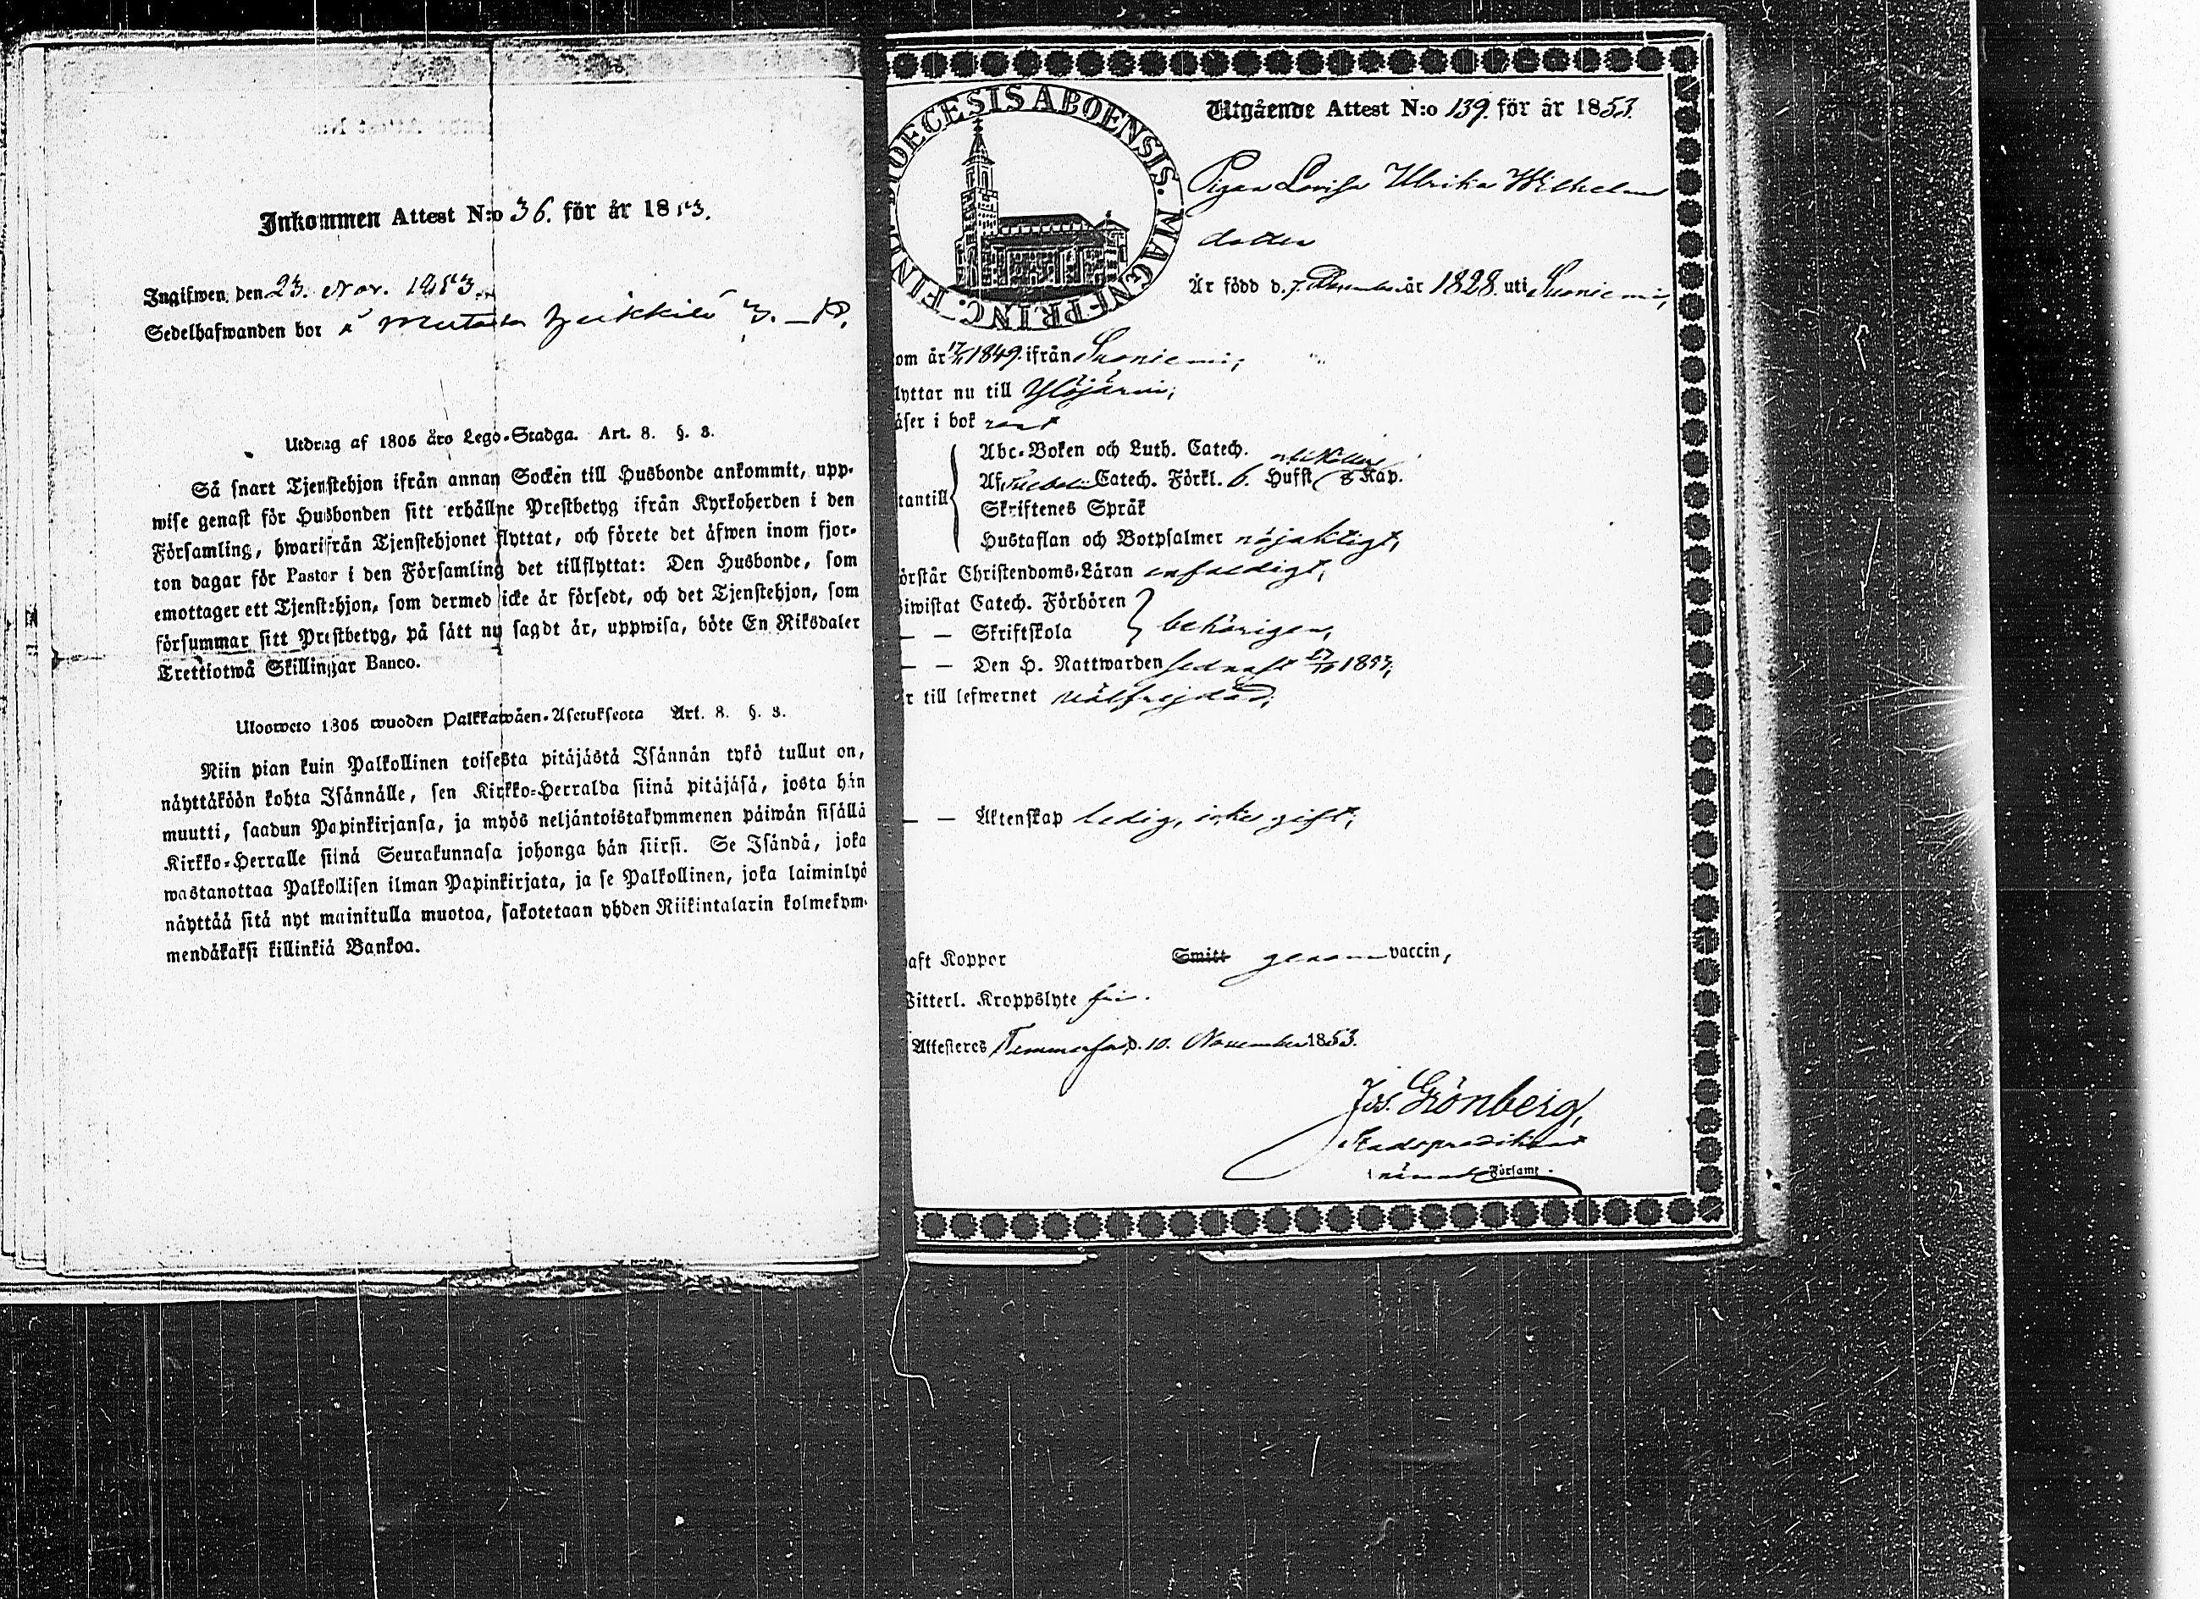 Inkommen Attest N:o 36. för år 1853.
Ingifwen den 23. Nov. 1853.
Sedelhafwanden bor å Mutala Heikkilä
Utdrag af 1805 års Lego-Stadga. Art. 8. §. 3.
Så snart Tjenstehjon ifrån annan Socken till Husbonde ankommit, upp-
wise genast för Husbonden sitt erhållne Prestbetyg ifrån Kyrkoherden i den
Församling, hwarifrån Tjenstehjonet flyttat, och förete det äfwen inom fjor-
ton dagar för Pastor i den Församling det tillflyttat: Den Husbonde, som
emottager ett Tjenstehjon, som dermed icke är försedt, och det Tjenstehjon, som
försummar sitt Prestbetyg, på sätt nu sagdt är, uppwisa, böte En Riksdaler
Trettiotwå Skillingar Banco.
Ulosweto 1805 wuoden Palkkawäen-Asetuksesta Art. 8. §. 3.
Niin pian kuin Palkollinen toisesta pitäjästä Isännän tykö tullut on,
näyttäköön kohta Isännälle, sen Kirkko-Herralda siinä pitäjäsä, josta hän
muutti, saadun Papinkirjansa, ja myös neljäntoistakymmenen päiwän sisällä
Kirkko-Herralle siinä Seurakunnasa johonga hän siirsi. Se Isändä, joka
wastanottaa Palkollisen ilman Papinkirjata, ja se Palkollinen, joka laiminlyö
näyttää sitä nyt mainitulla muotoa, sakotetaan yhden Riikintalarin kolmekym-
mendäkaksi killinkiä Bankoa.
DIOECESIS ABOENSIS. MAGNI PRINC. FINL.
Utgående Attest N:o 139. för år 1853.
Pigan Lovisa Ulrika Wilhelms
dotter
Är född d. 7. December år 1828. uti Suoniemi,
om år 17/11 1849. ifrån Suoniemi;
lyttar nu till Ylöjärvi;
äser i bok rent
Abc-Boken och Luth. Catech.
Af Catech. Förkl. 6. Hufst. 8 Kap.
tantill
Skriftenes Språk
Hustaflan och Botpsalmer nöjaktigt,
örstår Christendoms-Läran enfaldigt,
Biwistat Catech. Förhören
— — Skriftskola behörigen,
— — Den H. Nattwarden sednast 1853,
r till lefwernet välfrejdad;
— — Äktenskap ledig, icke gift;
aft Koppor Smitt genom vaccin,
Witterl. Kroppslyte fri.
Attesteres Tammerfors, d. 10. November 1853.
Jos. Grönberg,
Stadspredikant
Församl.